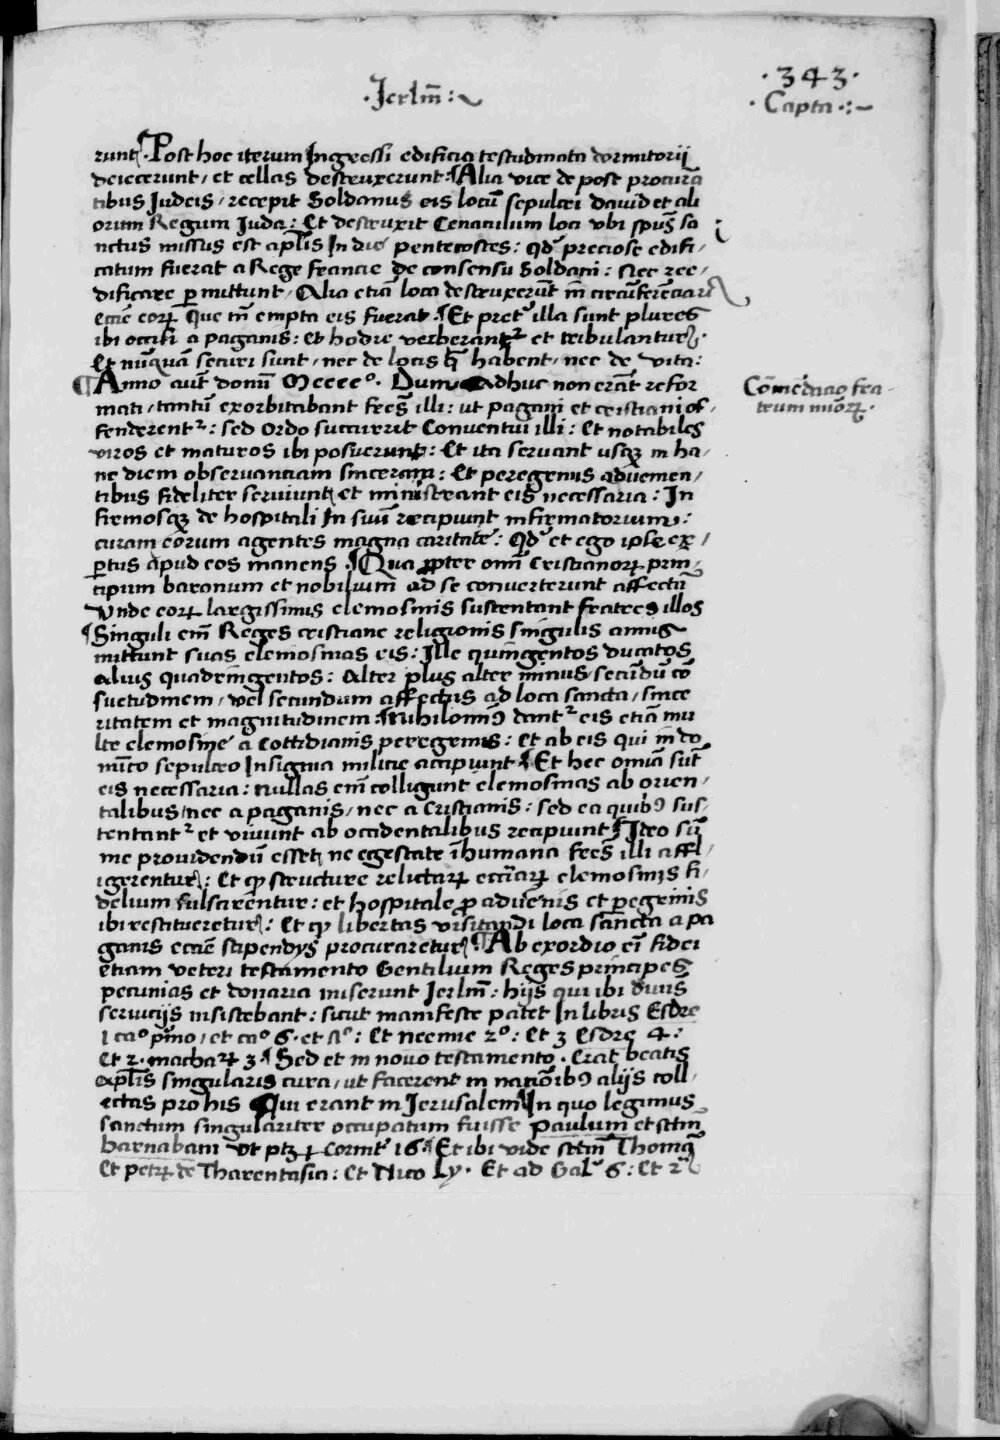 ·343·
·Jerlm̄:~
·Capta·:~
runt. ¶Post hoc iterum Ingressi edificia testudinata dormitorij
deiecerunt, et cellas destruxerunt: ¶Alia vice de post procurā
tibus Judeis, recepit Soldanus eis locū sepulcri david et ali
orum Regum Juda: Et destruxit Cenaculum loci vbi spūs sā
nctus missus est apl̄is In die pentecostes: qd̄ preciose edifi,
catum fuerat a Rege francie de consensu Soldani: Nec ree,
dificare ꝑmittunt, Alia etiā loca destruxerūt in circūferenciari
eccīe eorꝝ Que tn̄ empta eis fuerat. ¶Et pret illa sunt plures
ibi occisi a paganis: et hodie verberant᷑ et tribulantur·
Et nūquā securi sunt, nec de locis q̄ habent, nec de vita:
¶Anno aut̄ domī Mcccc°. Dum adhuc non erāt refor
mati, tantū exorbitabant frēs illi: ut pagani et cristiani of,
fenderent᷑: sed Ordo succurrit Conventui illi: Et notabiles
viros et maturos ibi posuerunt: Et ita servant usqꝫ in ha,
nc diem observantiam sinceram: Et peregrinis advenien,
tibus fideliter serviunt et ministrant eis necessaria: In
firmosqꝫ de hospitali In suū recipiunt infirmatorium:
curam eorum agentes magna caritate: Qd̄ et ego ipse ex,
ꝑtus apud eos manens. ¶Qua ꝓpter omī Cristianorꝝ prin,
cipum baronum et nobilium ad se converterunt affectū
Vnde eorꝝ largissimis elemosinis sustentant fratres illos
¶Singuli em̄ Reges cristiane religionis singulis annis
mittunt suas elemosinas eis: Ille quingentos ducatos
alius quadringentos: Alter plus alter minus, secūdū cō
suetudinem, vel secundum affectus ad loca sancta, since
ritatem et magnitudinem: ¶Nihilominꝰ dant᷑ eis etiā mu
lte elemosine a Cottidianis peregrinis: et ab eis qui in do
minico sepulcro Insignia militie accipiunt ¶Et hec omīa sūt
eis necessaria: nullas em̄ colligunt elemosinas ab orien,
talibus, nec a paganis, nec a Cristianis: sed ea quibꝰ sus,
tentant᷑ et vivunt ab occidentalibus recipiunt ¶Ideo sū
me providendū esset, ne egestate īhumana frēs illi affl,
igerentur: Et qꝫ structure relictarꝝ eccīarꝝ elemosinis fi,
delium fulcirentur: et hospitale ꝓ advenis et peregrinis
ibi restitueretur: Et qꝫ libertas visitandi loca sancta a pa
ganis eccīe stipendijs procuraretur ¶Ab exordio em̄ fidei
etiam veteri testamento Gentilium Reges principes
pecunias et donaria miserunt Jerlm̄: hijs qui ibi divis̄
servicijs insistebant: sicut manifeste patet In libris Esdre
1 ca° pīmo, et ca° 6. et : Et neemie 2°: Et 3 Esdre 4:
Et 2. machaꝝ 3. ¶Sed et in novo testamento. Erat beatis
apl̄is singularis cura, ut facerent in natiōibꝰ alijs coll,
ectas pro his Qui erant in Jerusalem ¶In quo legimus
sanctum singulariter occupatum fuisse Paulum et sctm̄
barnabam vt ptꝫ 1 corint 16. ¶Et ibi vide sctm̄ Thomā
et petrꝝ de Tharentasia: Et Nico Ly. Et ad Gal 6: Et 2
Cōmēdatio fra
trum minoꝝ·